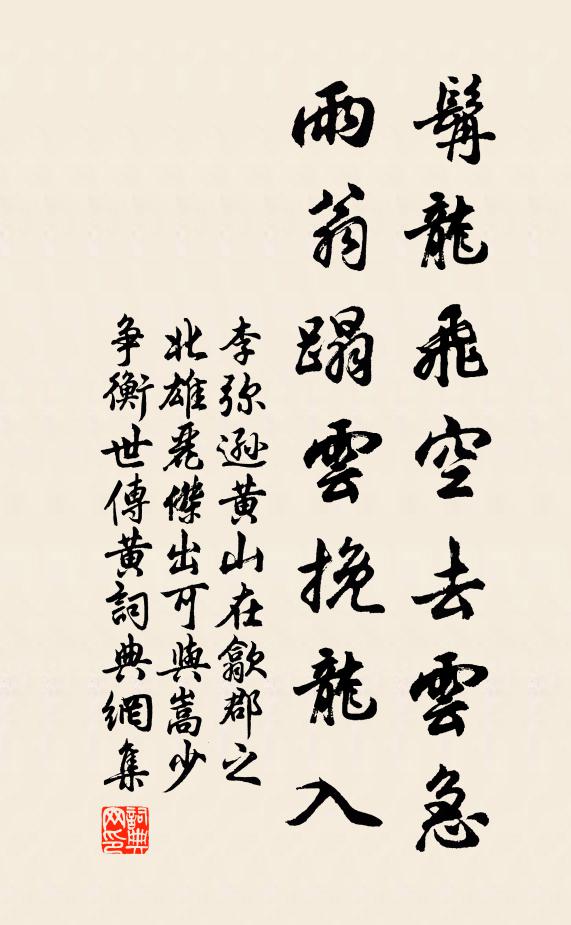 髯龍飛空去雲急
雨翁蹋雲挽龍入
李弥遜黄山在歙郡之
北雄麗傑出可與嵩少
争衡世傳黄詞典網集
詞典
网印